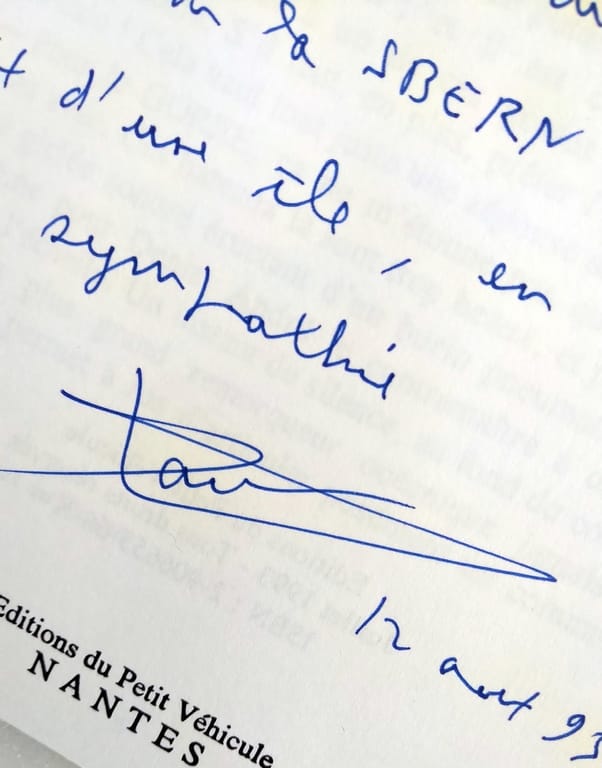 la SBERN
d'une île, en
sympathie
12 août 93
Editions du Petit Véhicule
NANTES